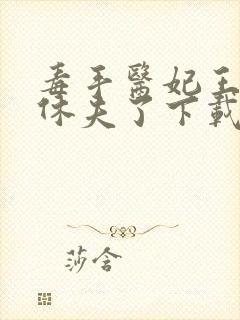 毒手醫妃王
休夫了下載
莎含